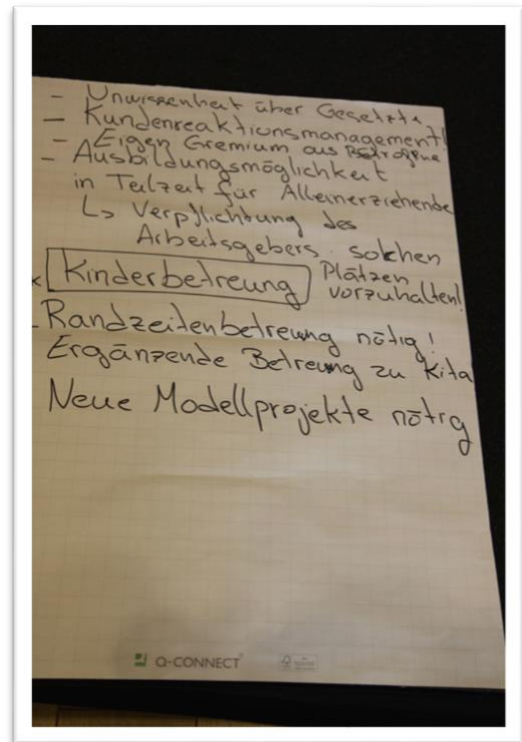 - Unwissenheit über Gesetzte
- Kundenreaktionsmanagement!
- Eigen Gremium aus Betroffene
- Ausbildungsmöglichkeit
in Teilzeit für Alleinerziehende
↳ Verpflichtung des
Arbeitsgebers solchen
Plätzen
vorzuhalten!
x Kinderbetreung
- Randzeitenbetreung nötig!
Ergänzende Betreung zu Kita
Neue Modellprojekte nötig
Q-CONNECT